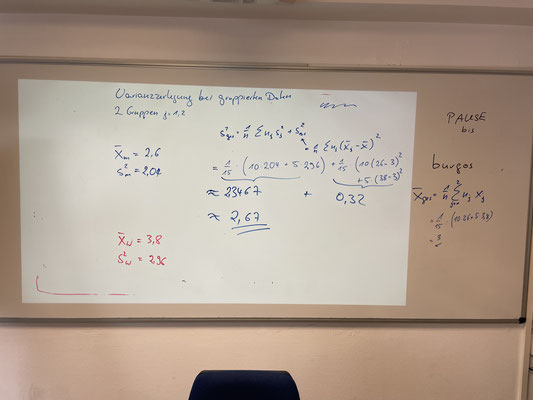 Varianzzerlegung bei gruppierten Daten
2 Gruppen j=1,2
x̄m = 2,6
s²m = 2,04
s²ges = 1/n Σ nj sj² + s²
= 1/n Σ nj (x̄j - x̄)²
= 1/15 · (10·2,04 + 5·2,96) + 1/15 · (10(2,6-3)²
+ 5·(3,8-3)²
≈ 2,3467 + 0,32
≈ 2,67
x̄w = 3,8
s²w = 2,96
PAUSE
bis
burgos
x̄ges = 1/n Σ nj x̄j
= 1/15 (10·2,6+5·3,8)
= 3